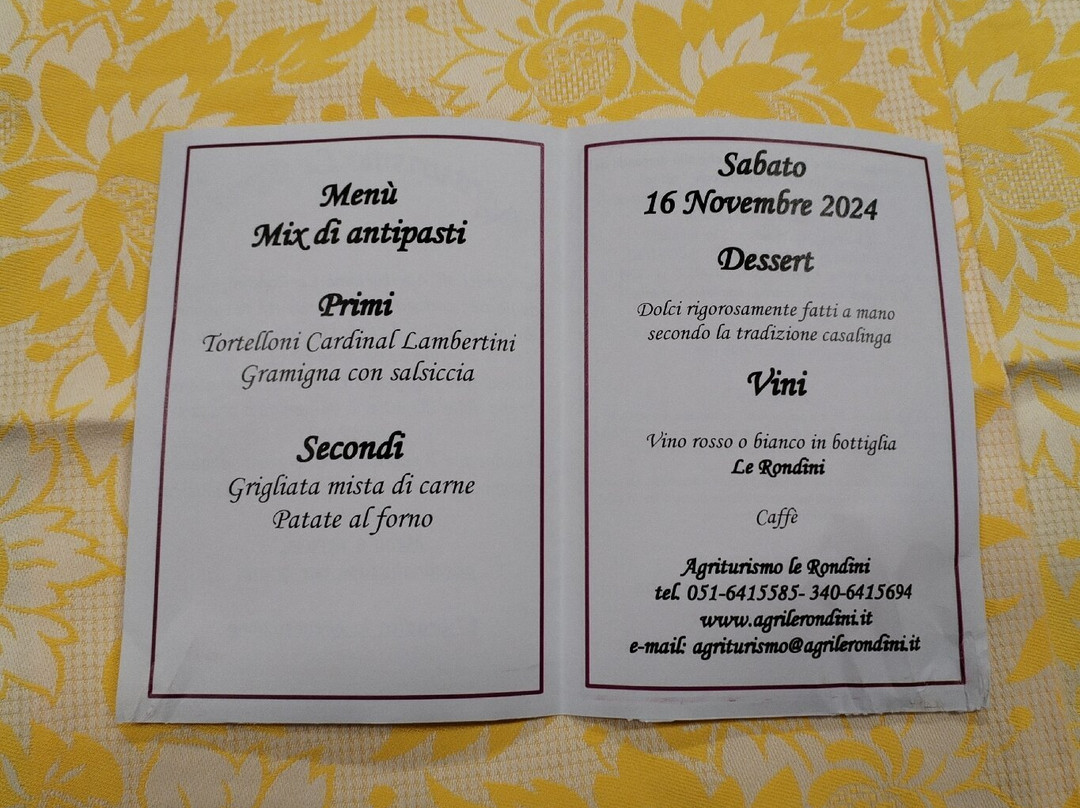 Menù
Mix di antipasti
Primi
Tortelloni Cardinal Lambertini
Gramigna con salsiccia
Secondi
Grigliata mista di carne
Patate al forno
Sabato
16 Novembre 2024
Dessert
Dolci rigorosamente fatti a mano
secondo la tradizione casalinga
Vini
Vino rosso o bianco in bottiglia
Le Rondini
Caffè
Agriturismo le Rondini
tel. 051-6415585- 340-6415694
www.agrilerondini.it
e-mail: agriturismo@agrilerondini.it